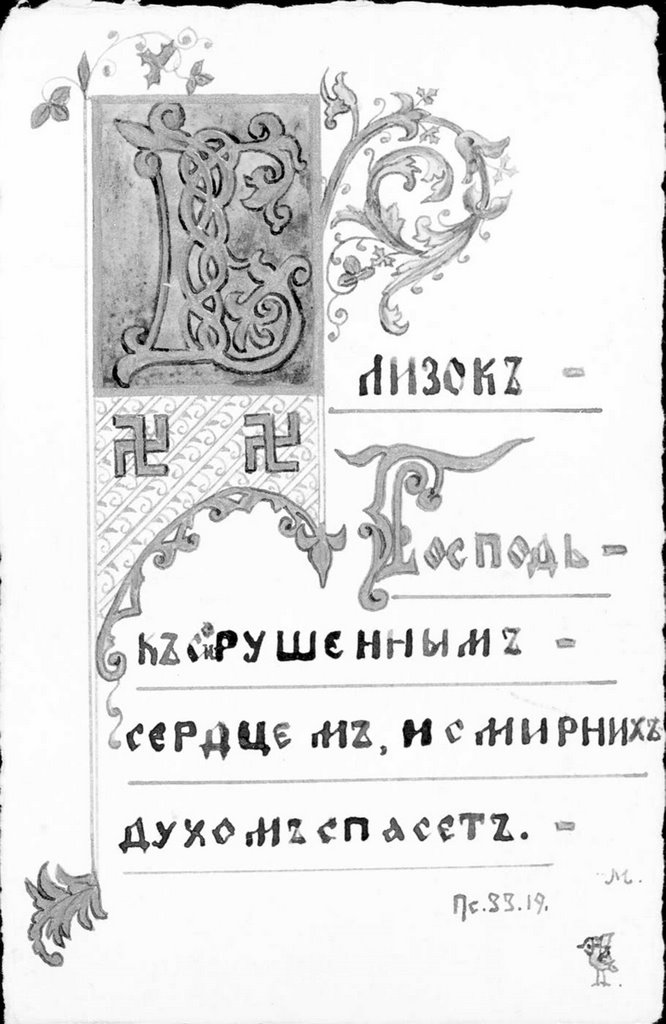 Близокъ -
Господь -
къ сокрушеннымъ -
сердцемъ, и смирнихъ
духомъ спасетъ. -
М.
Пс.33.19.